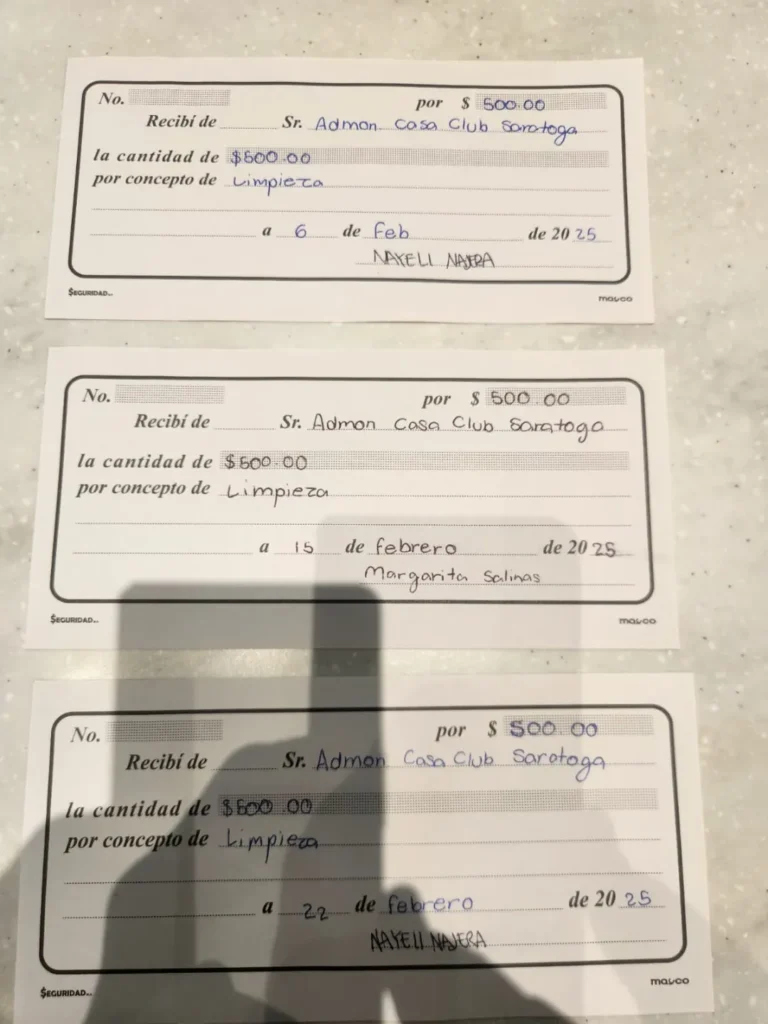 No. por $ 500.00
Recibí de Sr. Admon Casa Club Saratoga
la cantidad de $500.00
por concepto de Limpieza
a 6 de Feb de 2025
NAYELI NAJERA
$EGURIDAD... mavco
No. por $ 500.00
Recibí de Sr. Admon Casa Club Saratoga
la cantidad de $500.00
por concepto de Limpieza
a 15 de febrero de 2025
Margarita Salinas
$EGURIDAD... mavco
No. por $ 500.00
Recibí de Sr. Admon Casa Club Saratoga
la cantidad de $500.00
por concepto de Limpieza
a 22 de febrero de 2025
NAYELI NAJERA
$EGURIDAD... mavco